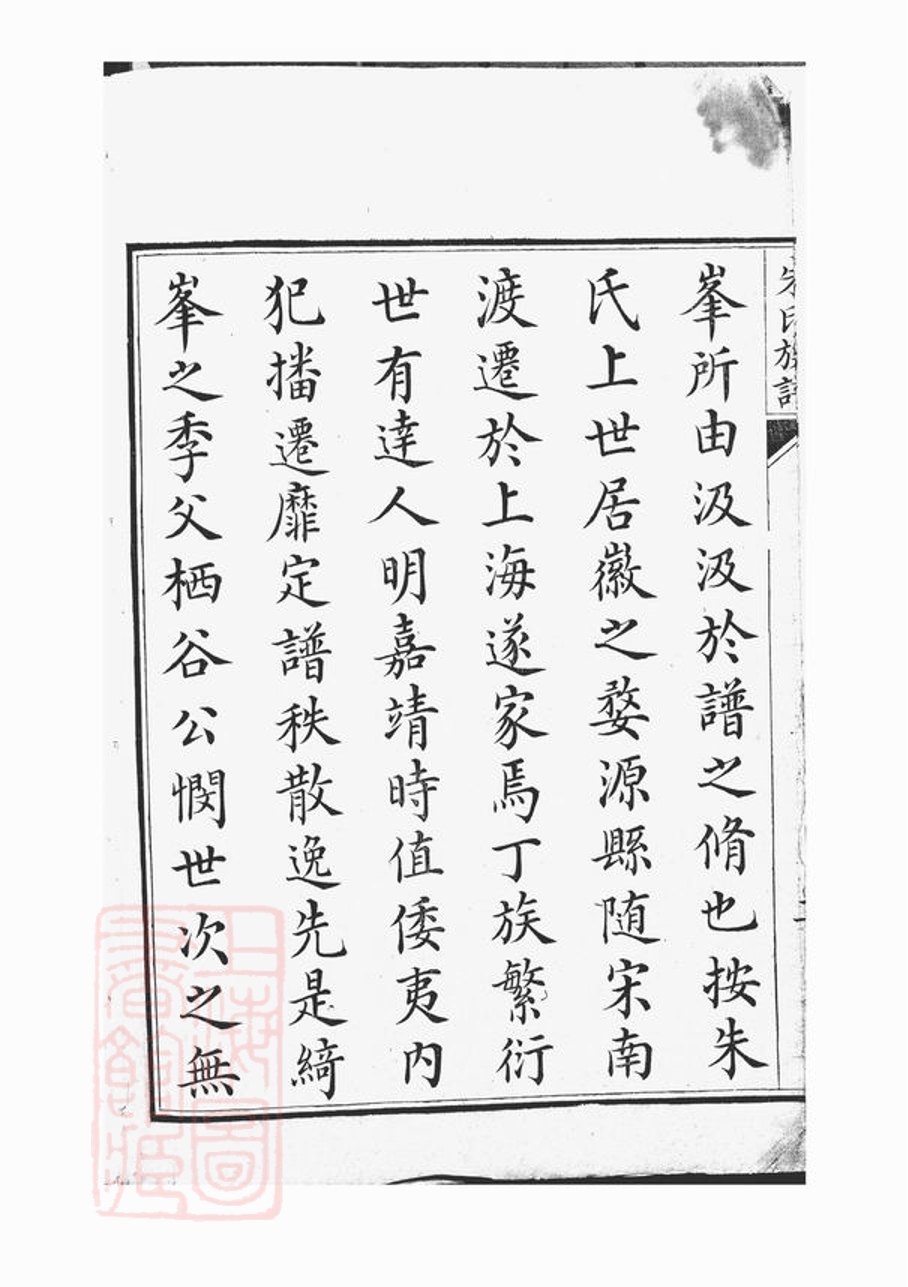 朱氏族譜
峯所由汲汲於譜之脩也按朱
氏上世居徽之婺源縣随宋南
渡遷於上海遂家焉丁族繁衍
世有達人明嘉靖時值倭夷内
犯播遷靡定譜秩散逸先是綺
峯之季父栖谷公憫世次之無
上海圖書館藏